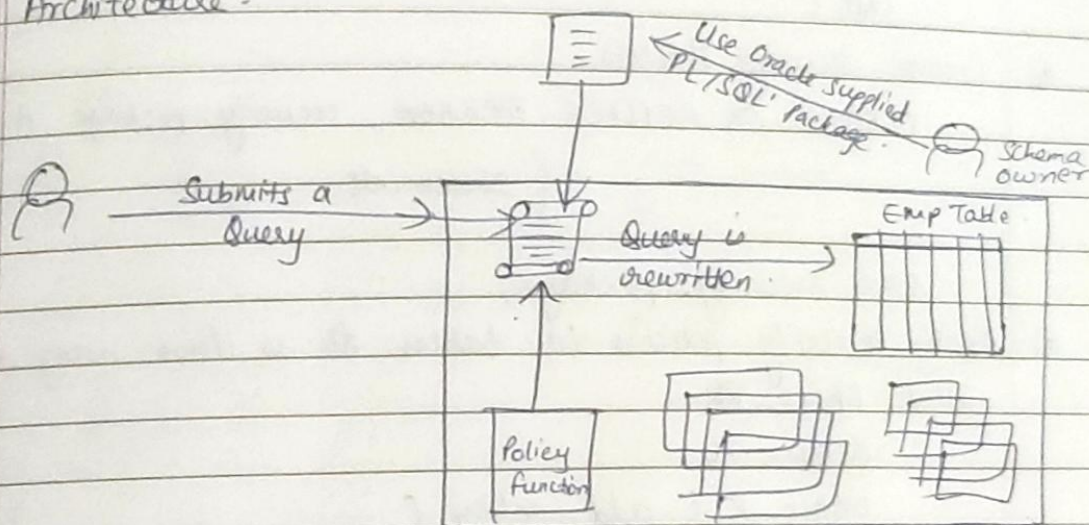 Architecture.
Use Oracle supplied
PL/SQL' Package.
Schema
owner
Submits a
Query
Query is
rewritten.
Emp Table
Policy
function